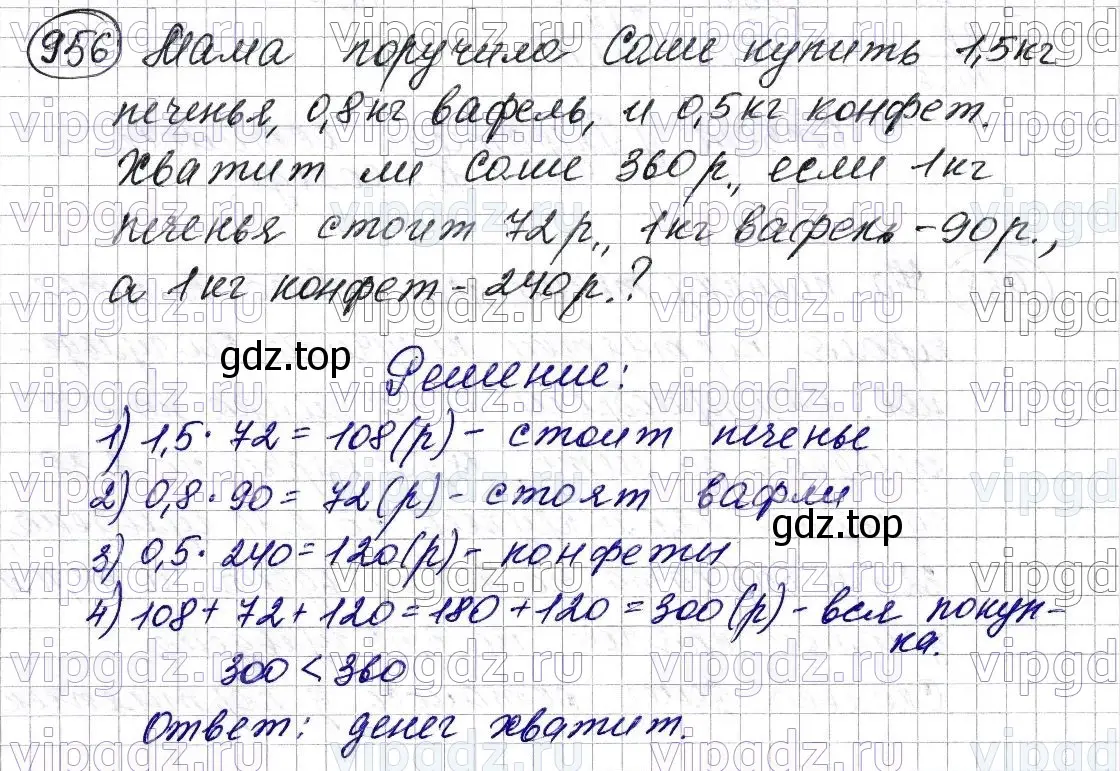 956 Мама поручила Саше купить 1,5кг
печенья, 0,8кг вафель, и 0,5кг конфет.
Хватит ли Саше 360р., если 1кг
печенья стоит 72р., 1кг вафель -90р.,
а 1кг конфет - 240р.?
gdz.top
Решение:
1) 1,5 · 72 = 108(р) - стоит печенье
2) 0,8 · 90 = 72(р) - стоят вафли
gdz.top
3) 0,5 · 240 = 120(р) - конфеты
4) 108 + 72 + 120 = 180 + 120 = 300(р) - вся покуп-
ка.
300 < 360
Ответ: денег хватит.